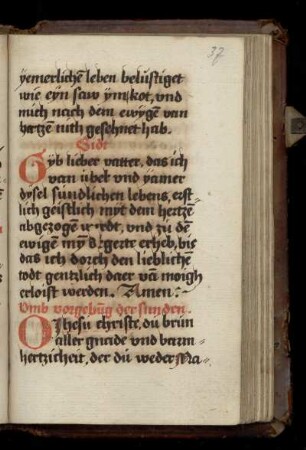 37
yemerlichē leben belustiget
wie eyn saw ym kot, vnd
mich nach dem ewygē van
hertzen nith gesehnet hab.
Gyb lieber vatter, das ich
van übel vnd yamer
dysel sundlichen lebens, erst-
lich geistlich myt dem hertzē
abgezogen werdt, vnd zů dē
ewigen my begerte erheb, bis
das ich dorch den lieblichen
todt gentzlich daer vā moigh
erloist werden. Amen:
Vmb vorgebūg der sunden.
O Jhesu christe, du brun
aller gnade vnd barm-
hertzicheit, der dů weder